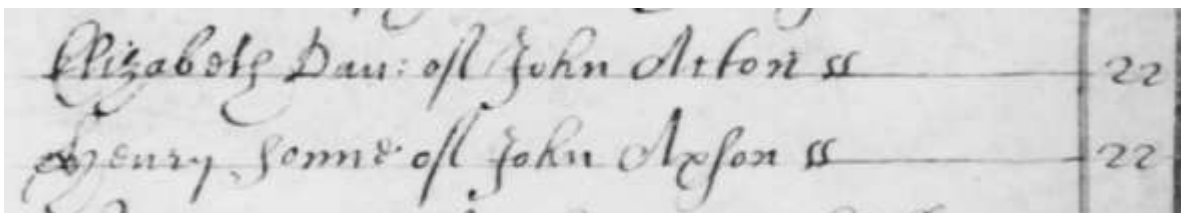 Elizabeth Dau: of John Acton ss 22
Henry Sonne of John Apson ss 22